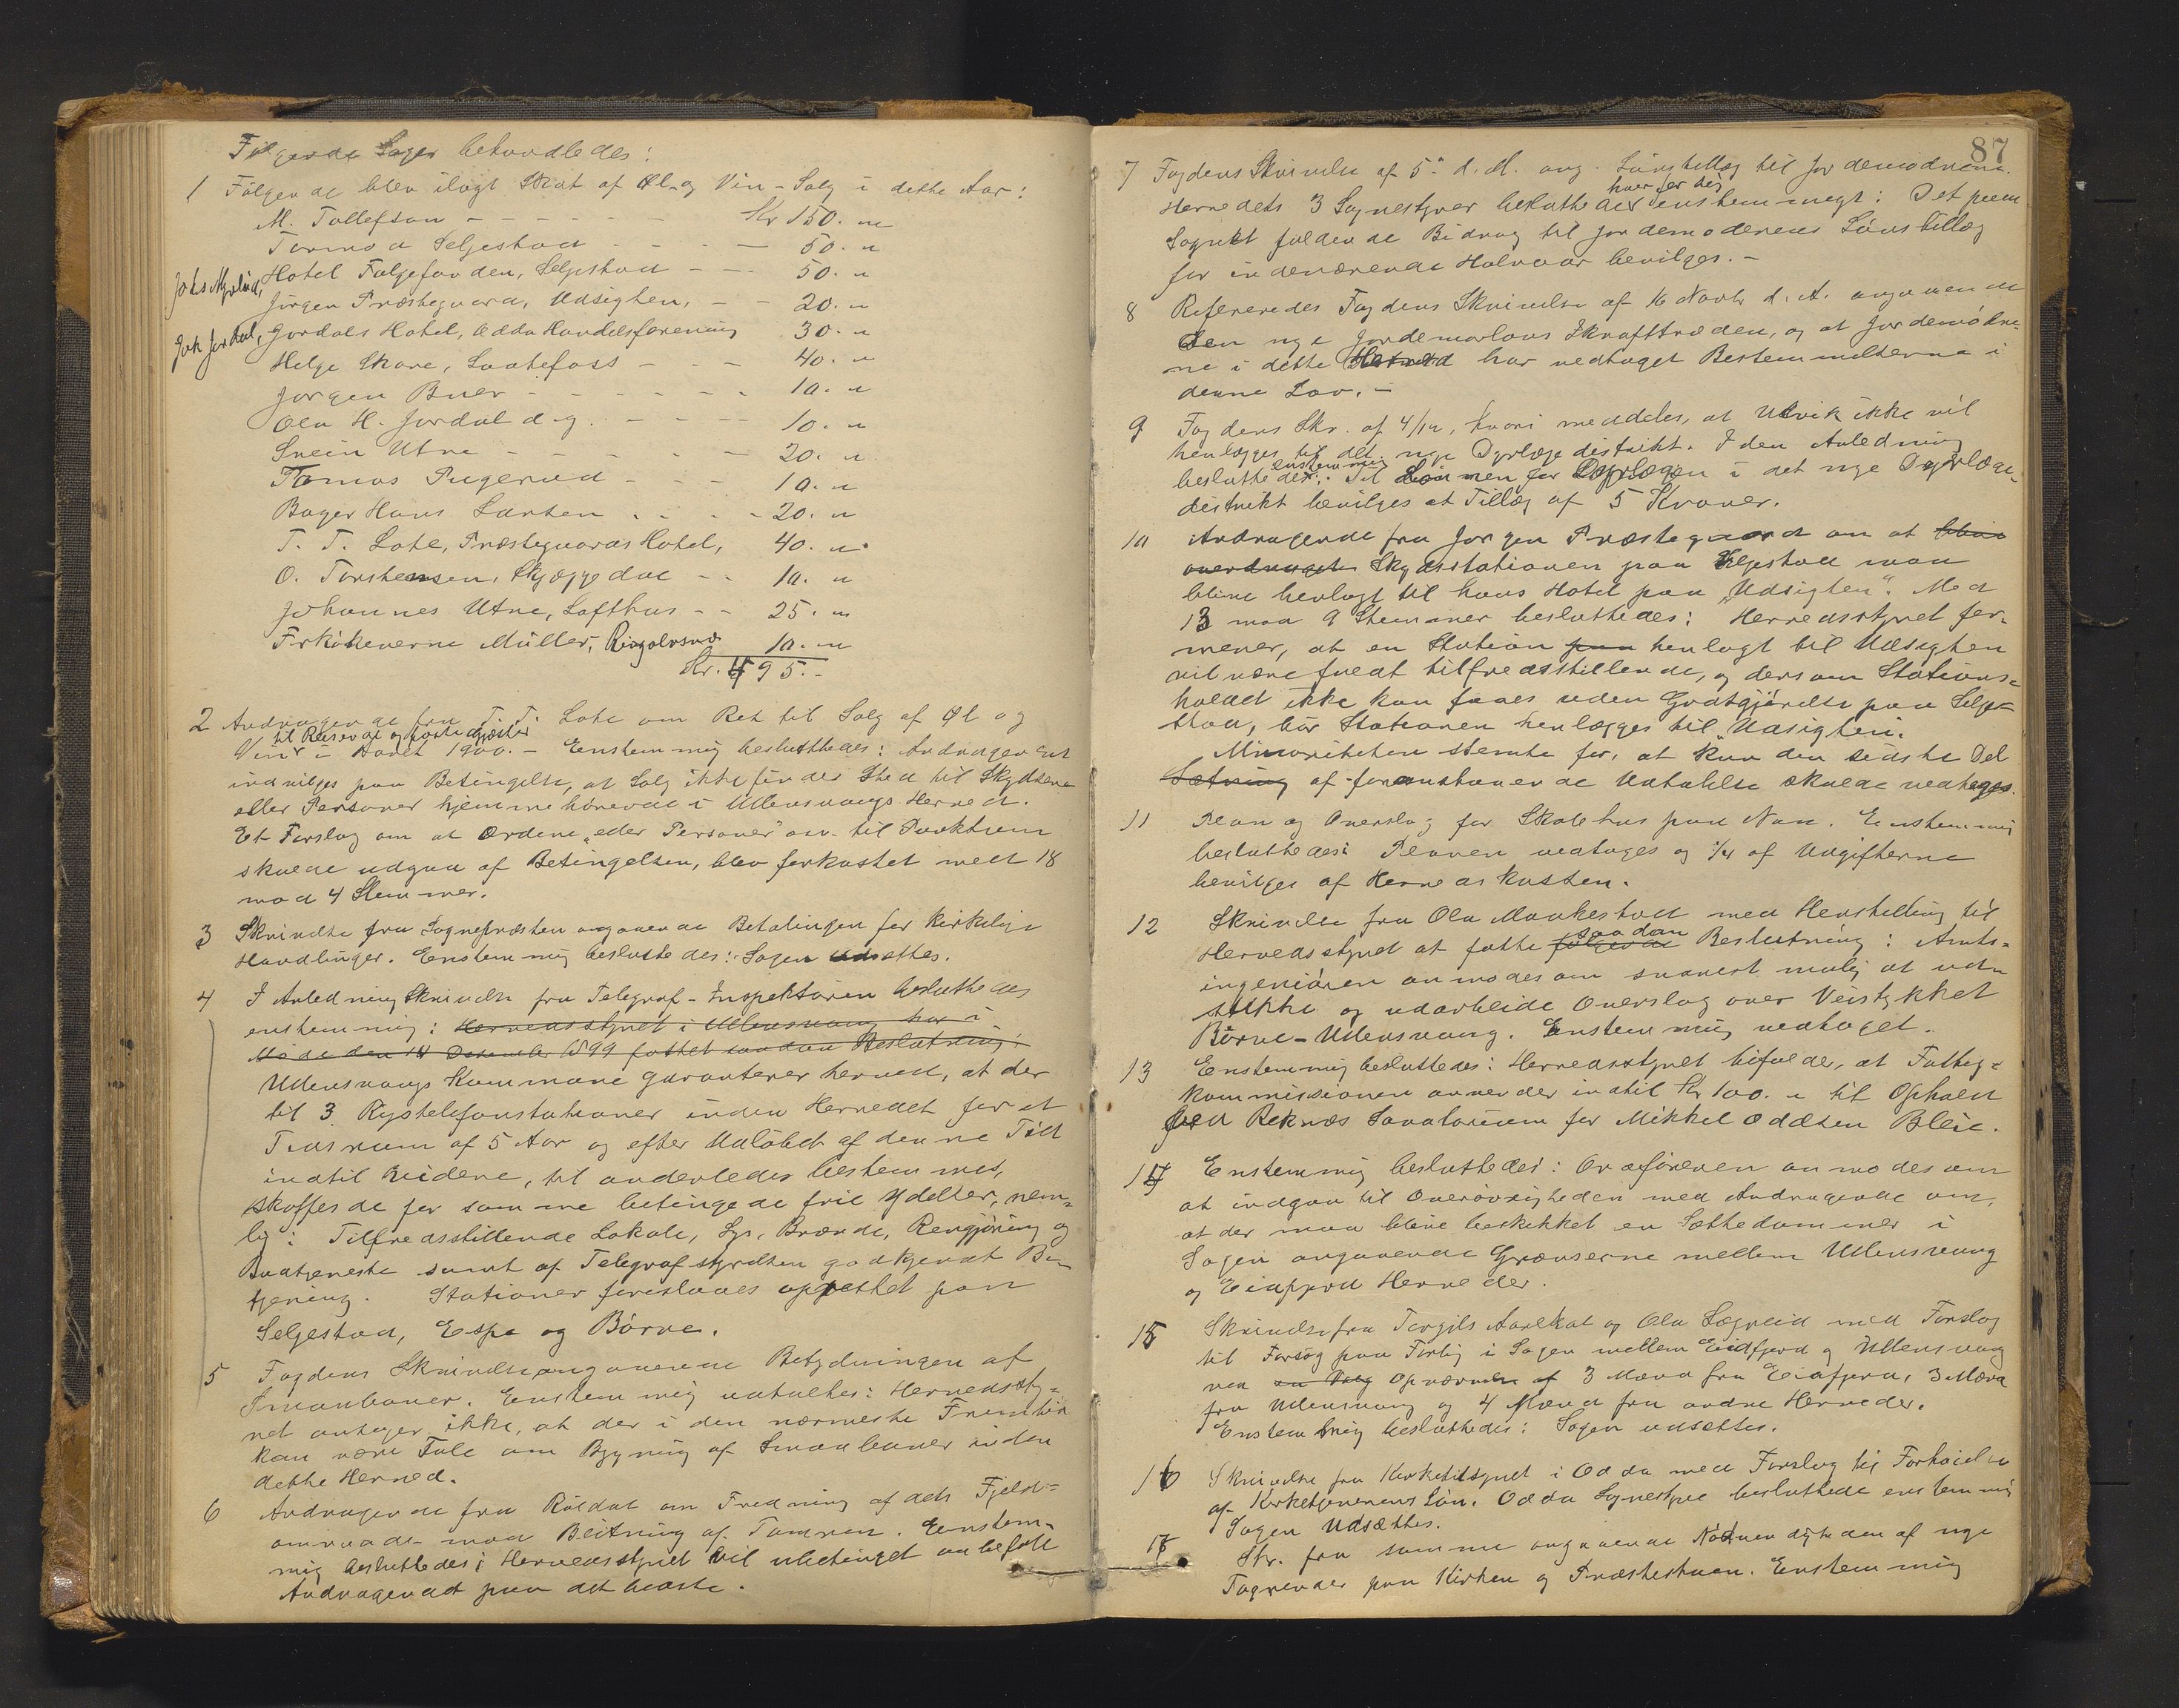 Følgende Sager behandledes:
1 Følgende blev ilagt Skat af Øl og Vin-Salg i dette Aar:
M. Tollefson - - - - - - Kr 150. "
Tormod Seljestad - - - - 50. "
Johs Mæland, Hotel Folgefonden, Seljestad - - - 50. "
Jørgen Præstegaard, Udsigten, - - 20. "
Joh Jordal, Jordals Hotel, Odda Handelsforening 30. "
Helge Skare, Laatefoss - - - 40. "
Jørgen Buer - - - - - - 10. "
Ola H. Jordal d.y. - - - - 10. "
Svein Utne - - - - - 20. "
Tomas Pugerud - - - 10. "
Bager Hans Larsen . . . - 20. "
T. T. Lote, Præstegaards Hotel, 40. "
O. Torstensen, Skjæggedal - - 10. "
Johannes Utne, Lofthus - - 25. "
Frøknerne Müller, 10. "
Kr. 495.-
2 Andragende fra T. T. Lote om Ret til Salg af Øl og
til Reisende og faste Gjæster
Vin i Aaret 1900. - Enstemmig besluttedes: Andragendet
indvilges paa Betingelse, at Salg ikke finder Sted til Skydsende
eller Personer hjemmehørende i Ullensvangs Herred.
Et Forslag om at Ordene "eller Personer" osv. til Punktum
skulde udgaa af Betingelsen, blev forkastet med 18
mod 4 Stemmer.
3 Skrivelse fra Sognepræsten angaaende Betalingen for kirkelige
Handlinger. Enstemmig besluttedes: Sagen udsættes.
4 I Anledning Skrivelse fra Telegraf-Inspektøren besluttedes
enstemmig: Herredsstyret i Ullensvang har i
Møde den 18 Desember 1899 fattet saadan Beslutning:
Ullensvangs Kommune garanterer herved, at der
til 3 Rigstelefonstationer inden Herredet for et
Tidsrum af 5 Aar og efter Udløbet af denne Tid
indtil videre, til anderledes bestemmes,
skaffes de for samme betingede frie Ydelser, nem-
lig: Tilfredsstillende Lokale, Lys, Brænde, Rengjøring og
Budtjeneste samt af Telegrafstyrelsen godkjendt Be-
tjening. Stationer foreslaaes oprettet paa
Seljestad, Espe og Børve.
5 Fogdens Skrivelse angaaende Betydningen af
Smaabaner. Enstemmig udtaltes: Herredssty-
ret antager ikke, at der i den nærmeste Fremtid
kan være Tale om Bygning af Smaabaner inden
dette Herred.
6 Andragende fra Røldal om Fredning af dets Fjeld-
omraade mod Beitning af Tamren. Enstem-
mig besluttedes: Herredsstyret vil ubetinget anbefale
Andragendet paa det bedste.
87
7 Fogdens Skrivelse af 5" d. M. ang. Lønstillæg til Jordemødrene.
hver for sig
Herredets 3 Sognestyrer besluttede enstemmigt: Det paa
Sognet faldende Bidrag til Jordemoderens Lønstillæg
for indeværende Halvaar bevilges. -
8 Refereredes Fogdens Skrivelse af 16 Novbr d. A. angaaende
den nye Jordemorlovs Ikrafttræden, og at Jordemødre-
ne i dette Herred har vedtaget Bestemmelserne i
denne Lov. -
9 Fogdens Skr. af 4/12, hvori meddeles, at Ulvik ikke vil
henlægges til det nye Dyrlægedistrikt. I den Anledning
enstemmig
besluttedes: Til Lønnen for Dyrlægen i det nye Dyrlæge-
distrikt bevilges et Tillæg af 5 Kroner.
10 Andragende fra Jørgen Præstegaard om at blive
overdraget Skydsstationen paa Seljestad maa
blive henlagt til hans Hotel paa "Udsigten". Med
13 mod 9 Stemmer besluttedes: Herredsstyret for-
mener, at en Station paa henlagt til Udsigten
vil være fuldt tilfredsstillende, og dersom Stations-
holdet ikke kan faaes uden Godtgjørelse paa Selje-
stad, bør Stationen henlægges til "Udsigten.
Minoriteten stemte for, at kun den sidste Del
Sætning af foranstaaende Udtalelse skulde vedtages.
11 Plan og Overslag for Skolehus paa Naa. Enstemmig
besluttedes: Planen vedtages og 1/4 af Udgifterne
bevilges af Herredskassen.
12 Skrivelse fra Ola Maakestad med Henstilling til
saadan
Herredsstyret at fatte følgende Beslutning: Amts-
ingeniøren anmodes om snarest mulig at ud-
stikke og udarbeide Overslag over Veistykket
Børve-Ullensvang. Enstemmig vedtaget.
13 Enstemmig besluttedes: Herredsstyret bifalder, at Fattig-
kommissionen anvender indtil Kr 100. " til Ophold
ved Reknæs Sanatorium for Mikkel Oddsen Bleie.
14 Enstemmig besluttedes: Ordføreren anmodes om
at indgaa til Overøvrigheden med Andragende om,
at der maa blive beskikket en Sættedommer i
Sagen angaaende Grænserne mellem Ullensvang
og Eidfjord Herreder.
15 Skrivelse fra Torgils Aarekol og Ola Lægreid med Forslag
til Forsøg paa Forlig i Sagen mellem Eidfjord og Ullensvang
ved en Valg Opnævnelse af 3 Mænd fra Eidfjord, 3 Mænd
fra Ullensvang og 4 Mænd fra andre Herreder.
Enstemmig besluttedes: Sagen udsættes.
16 Skrivelse fra Kirketilsynet i Odda med Forslag til Forhøielse
af Kirketjenerens Løn. Odda Sognestyre besluttede enstemmig
Sagen udsættes.
17 Skr. fra samme angaaende Nødvendigheden af nye
Tagrender paa Kirken og Præstestuen. Enstemmig